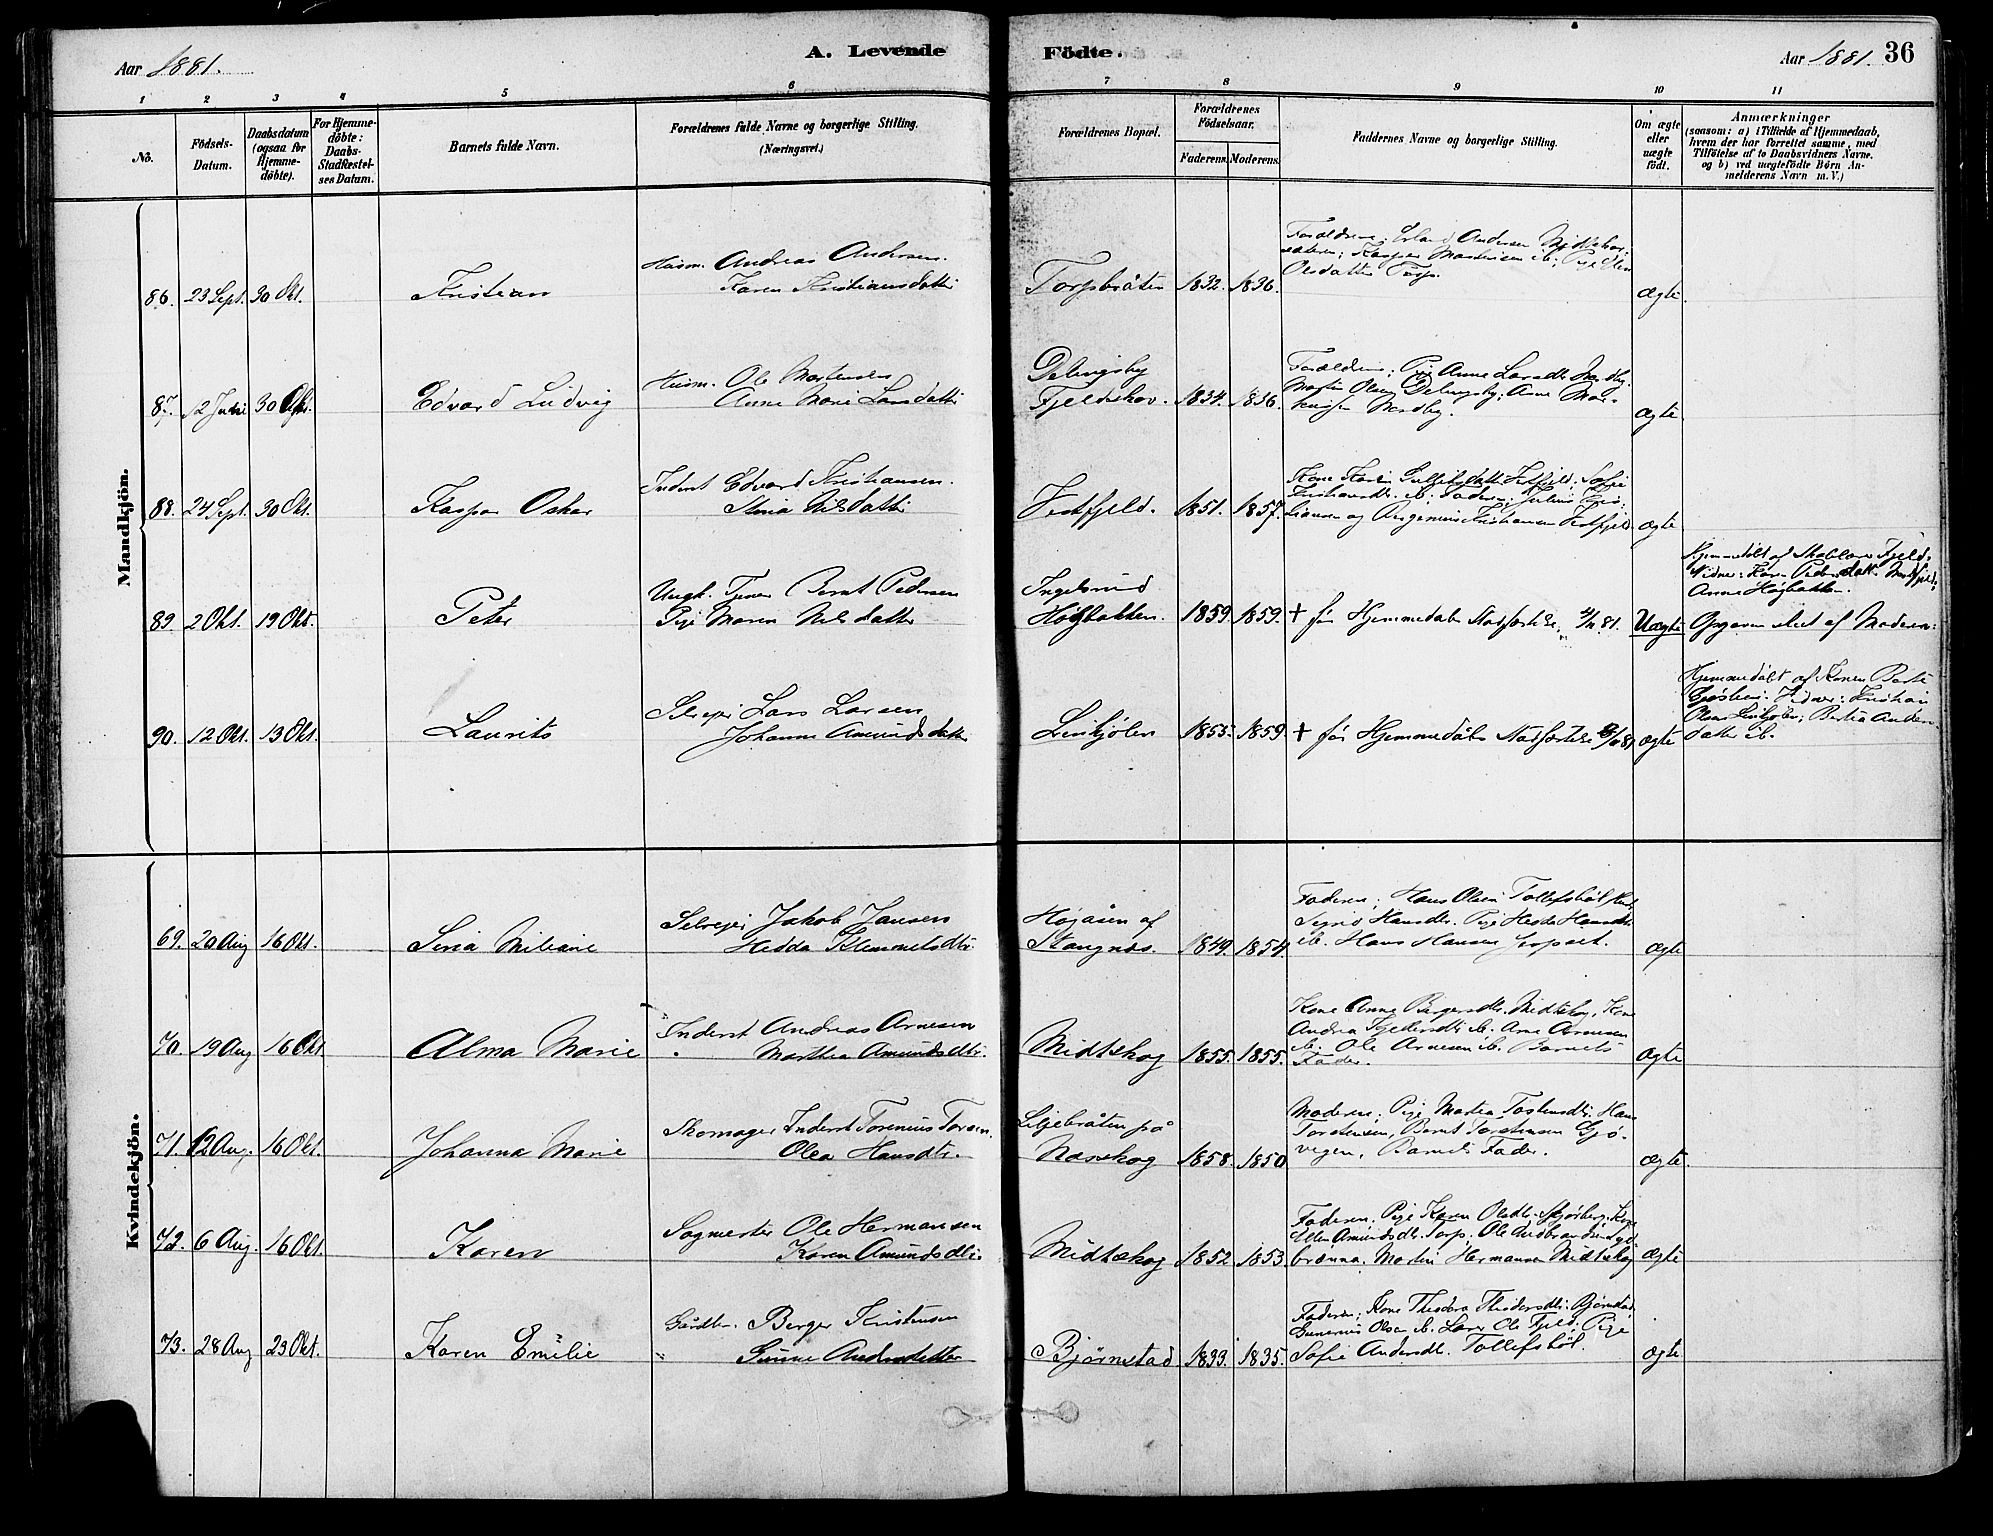 Aar 1881.
A. Levende
Födte.
Aar 1881. 36
1 2 3 4 5 6 7 8 9 10 11
No.
Födsels-Datum.
Daabsdatum (ogsaa for Hjemme-döbte).
For Hjemme-döbte: Daabs-Stadfæstel-ses Datum.
Barnets fulde Navn.
Forældrenes fulde Navne og borgerlige Stilling. (Næringsvei.)
Forældrenes Bopæl.
Forældrenes Födselsaar.
Faderens. Moderens.
Faddernes Navne og borgerlige Stilling.
Om ægte eller uægte födt.
Anmærkninger
(saasom: a) i Tilfælde af Hjemmedaab,
hvem der har forrettet samme, med
Tilföielse af to Daabsvidners Navne.
og b) ved uegtefödte Börn An-
melderens Navn m. V.)
Mandkjön.
86. 23 Sept. 30 Okt.
Kristian
Husm. Andreas Andersen.
Karen Kristiansdatter
Torpsbråten
1832. 1836.
Forældrene; Erland Andersen
Kasper Martinsen ib; Pige Ellen
Olsdatter Torp.
ægte
87. 12 Julie 30 Okt.
Edvard Ludvig
Husm. Ole Mortensen
Anne Marie Larsdatter
Delingsby
Fjeldskov.
1834. 1836.
Forældrene; Pige Anne Larsdtr Nordby.
Martin Olsen Delingsby; Arne Mar-
tinsen Nordby.
ægte
88. 24 Sept. 30 Okt.
Kasper Oskar
Inderst Edvard Kristiansen.
Stina Nilsdatter
Festfjeld.
1851. 1857.
Kone Karen Gulliksdatter Festfjeld; Sofie
Kristiansdtr. ib. Faderen; Julius Kris-
tiansen og Bergenius Kristiansen Festfjeld
ægte
89. 2 Okt. 19 Okt.
Peter
Ungk. Tjener Bernt Pedersen
Pige Maren Nilsdatter
Ingelsrud
Høgbakken.
1859. 1859.
+ før Hjemmedabs Stadfæstelse
Uægte
Hjemmedøbt af Skolelærer Fjeld.
Vidner: Karen Pedersdatter
Anne Høgbakken.
Opgaven skeet af Moderen.
90. 12 Okt. 13 Okt.
Laurits
Selveier Lars Larsen
Johanne Amundsdatter
Linkjølen
1855. 1859.
+ før Hjemmedåbs Stadfæstelse
ægte
Hjemmedøbt af Konen Berte
Vidner: Kristian
Olsen Linkjølen; Bertea Anders
datter ib.
Kvindekjön.
69. 20 Aug 16 Okt.
Sina Miliane
Selveier Jakob Jansen
Hedda Klemmetsdtr.
Højåsen af
Stangnes.
1849. 1854.
Faderen; Hans Olsen Tollefsbøl
Signe Hansdtr. Pige Hedda Hansdtr
ib. Hans Hansen
ægte
70. 19 Aug 16 Okt
Alma Marie
Inderst Andreas Arnesen
Marthea Amundsdtr.
Midtskog
1855. 1855.
Kone Anne Bergersdtr. Midtskog, Kone
Andrea ib. Arne Arnesen
ib. Ole Arnesen ib. Barnets
Fader.
ægte
71. 12 Aug. 16 Okt.
Johanna Marie
Skomager Inderst Torenius Torsen.
Olea Hansdtr.
Liljebråten på
Næsskog
1858. 1850
Moderen; Pige Martea Tostensdtr. Hans
Torstensen, Bernt Torstensen Gjø-
vegen, Barnets Fader.
ægte.
72. 6 Aug. 16 Okt.
Karen
Sagmester Ole Hermansen
Karen Amundsdtr.
Midtskog
1852. 1853.
Faderen; Pige Karen Olsdtr. Skjørberg, Kone
Ellen Amundsdtr. Torp; Ole
Martin Hermansen Midtskog
ægte
73. 28 Aug 23 Okt.
Karen Emilie
Gårdbr. Berger Kristensen
" Gunne Andersdatter
Bjørnstad
1833. 1835.
Faderen; Kone Theodora Theodorsdtr. Bjørnstad.
Gunerius Olsen ib. Lærer Ole Fjeld. Pige
Sofie Andersdtr. Tollefsbøl.
ægte